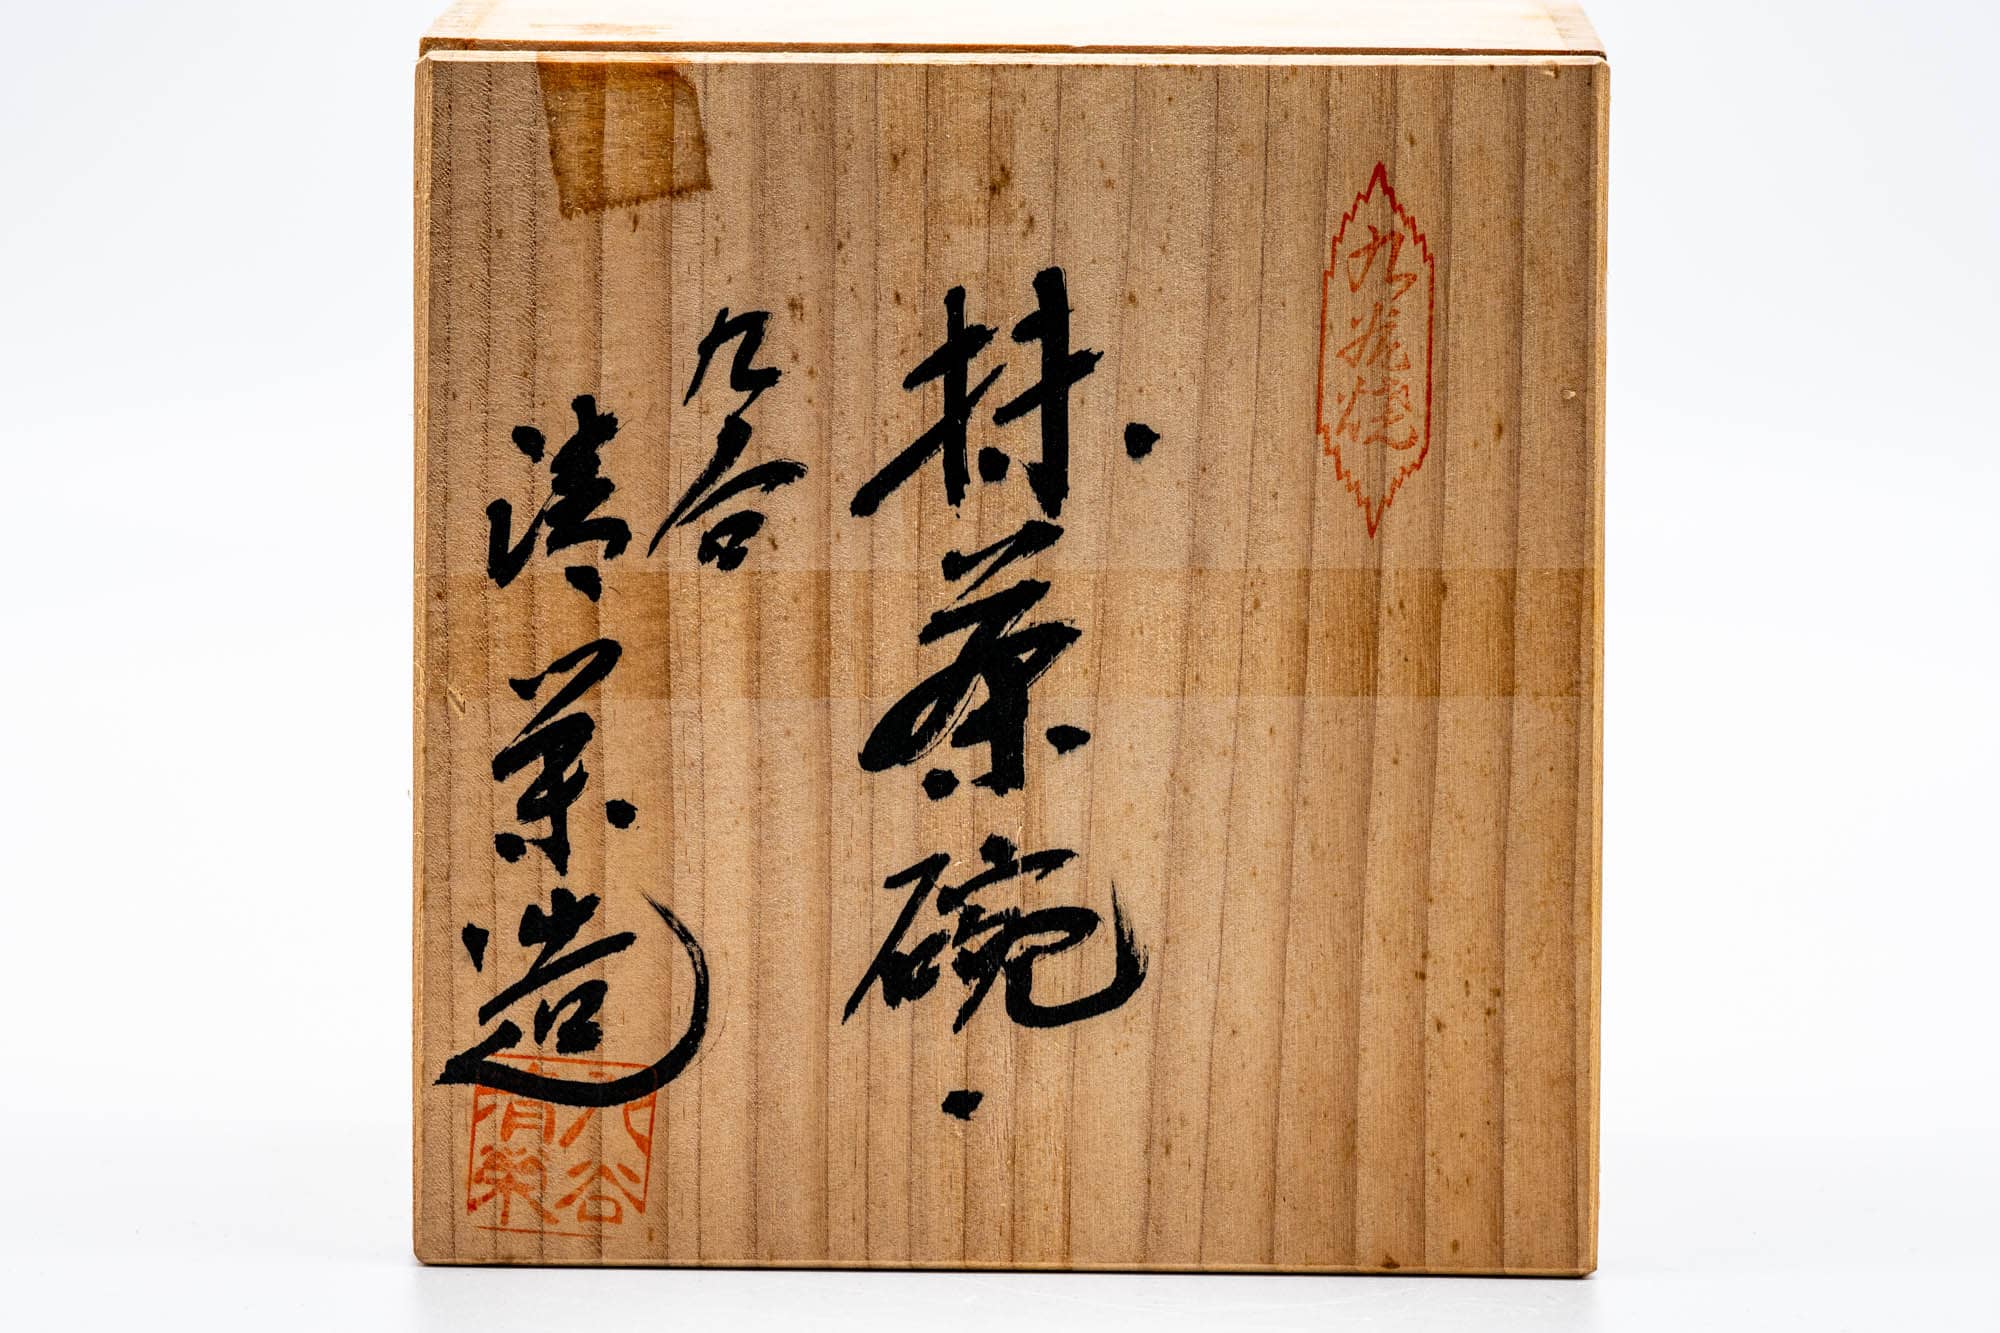 九 焼
抹茶碗
九谷
清栄造
九谷
清栄